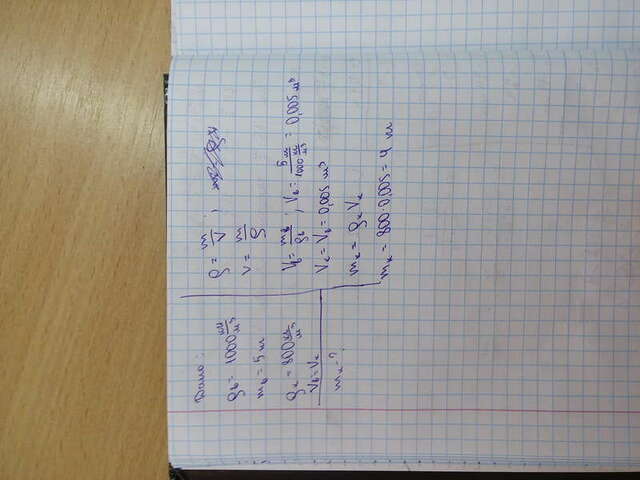 Дано:
ρв = 1000 кг/м³
mв = 5 кг
ρк = 800 кг/м³
Vв = Vк
mк - ?
ρ = m/V ;
V = m/ρ
Vв = mв/ρв ; Vв = 5 кг / 1000 кг/м³ = 0,005 м³
Vк = Vв = 0,005 м³
mк = ρк Vк
mк = 800 · 0,005 = 4 кг